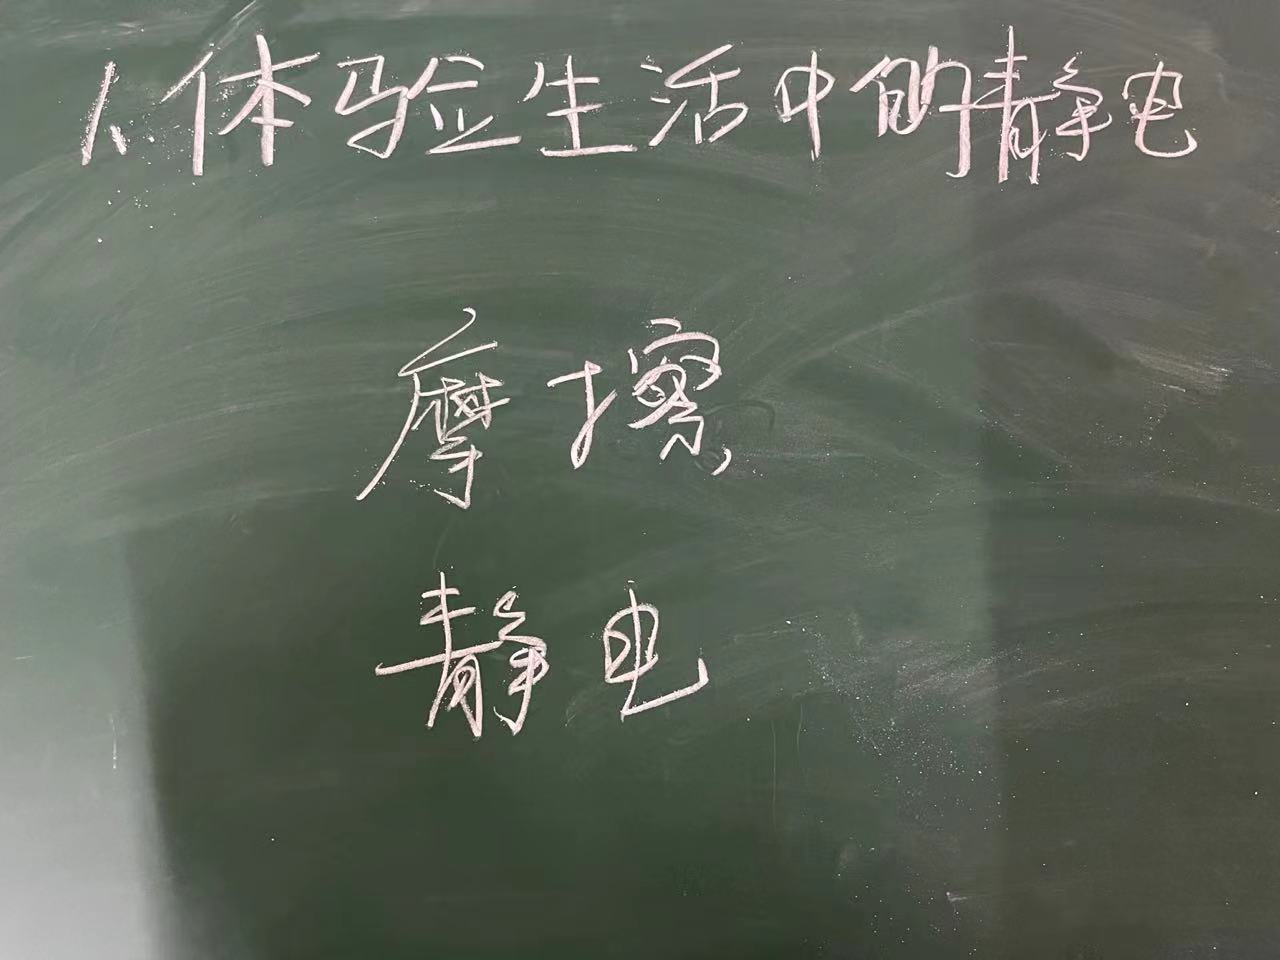 1.体验生活中的静电
摩擦
静电